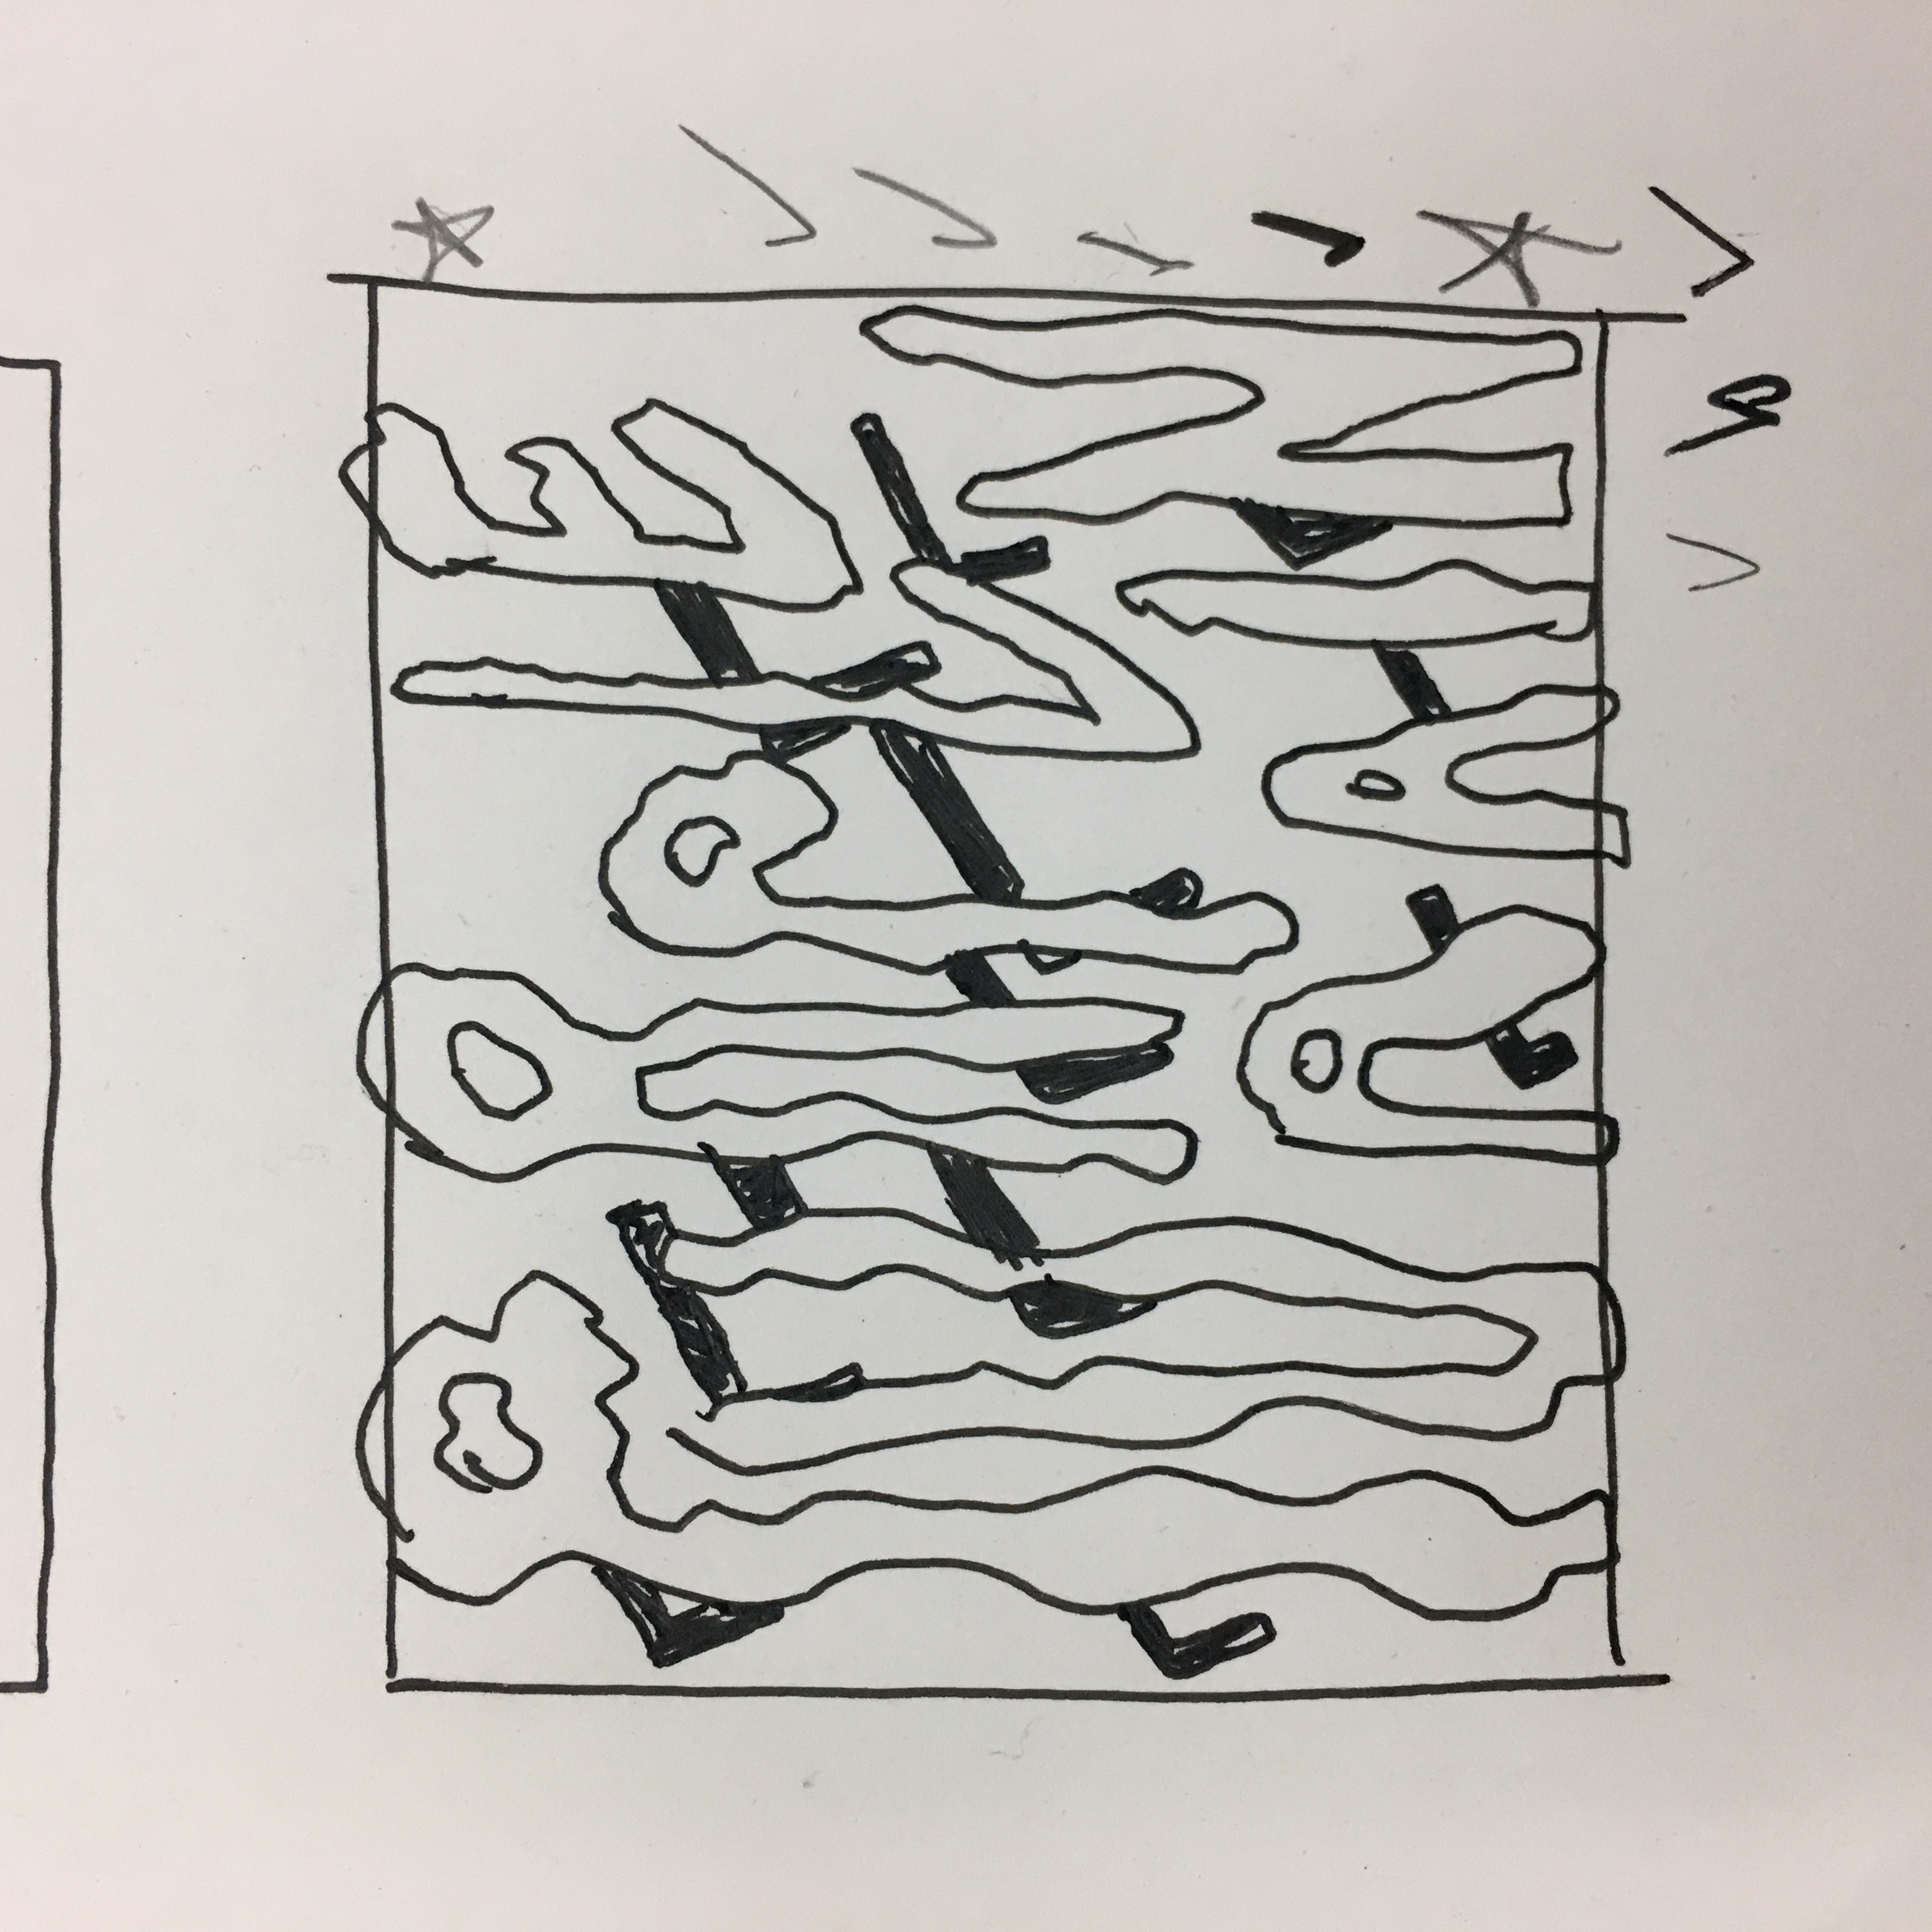 PURPLE
RAIN
b